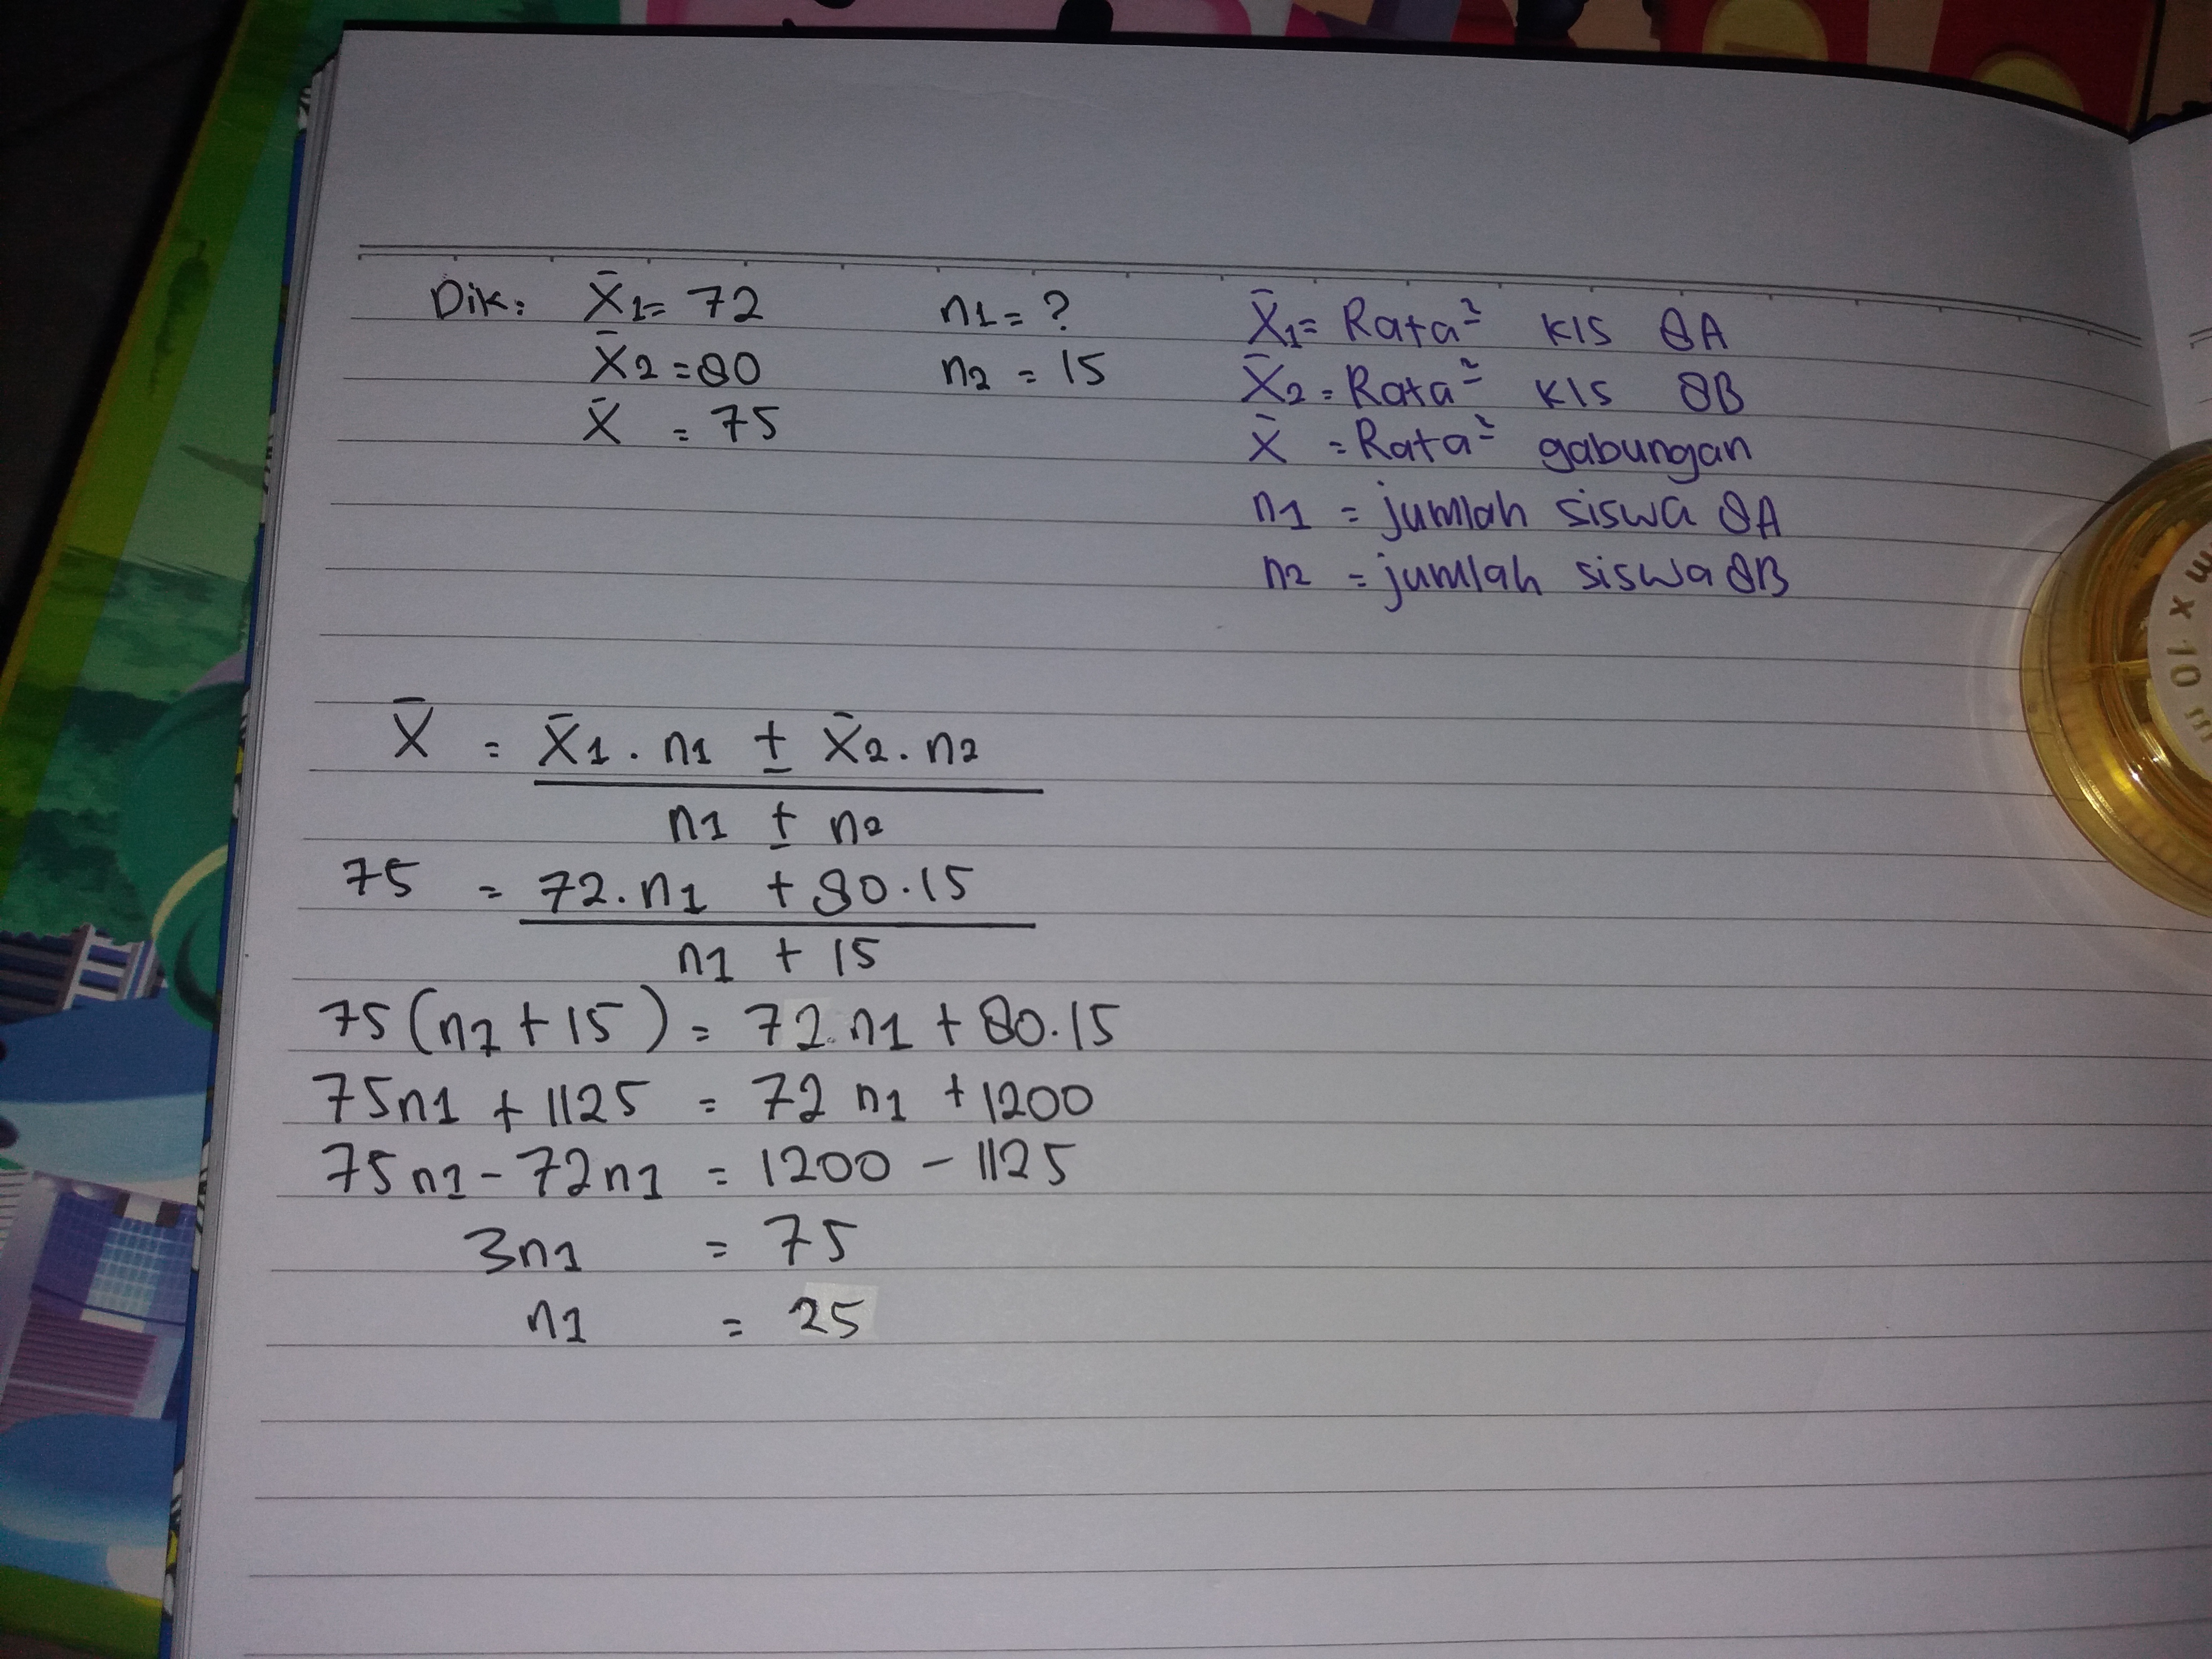 Dik: X̄1= 72 n1 = ?
X̄2 = 80 n2 = 15
X̄ = 75
X̄1= Rata² Kls 8A
X̄2 = Rata² Kls 8B
X̄ = Rata² gabungan
n1 = jumlah siswa 8A
n2 = jumlah siswa 8B
X̄ = X̄1 . n1 ± X̄2 . n2
n1 ± n2
75 = 72 . n1 + 80 . 15
n1 + 15
75 (n1 + 15) = 72 . n1 + 80 . 15
75n1 + 1125 = 72 n1 + 1200
75 n1 - 72n1 = 1200 - 1125
3n1 = 75
n1 = 25
m x 10 m